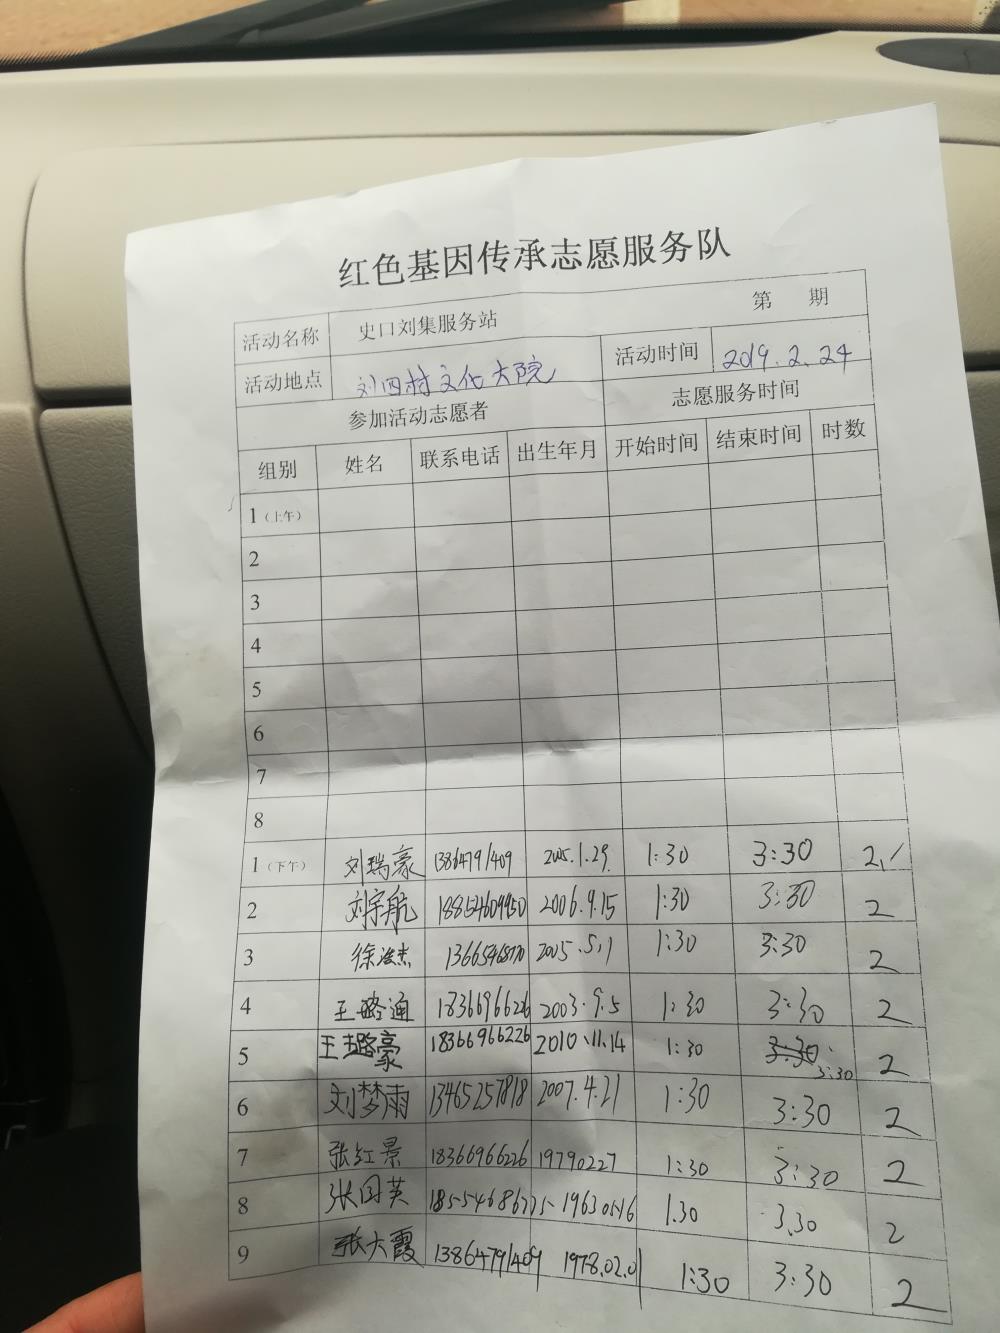 红色基因传承志愿服务队
活动名称 史口刘集服务站 第 期
活动地点 刘四村文化大院 活动时间 2019.2.24
参加活动志愿者 志愿服务时间
组别 姓名 联系电话 出生年月 开始时间 结束时间 时数
1(上午)
2
3
4
5
6
7
8
1(下午) 刘瑞豪 13864791409 2005.1.29 1:30 3:30 2
2 刘宇航 18854609950 2006.9.15 1:30 3:30 2
3 徐浚杰 2005.5.1 1:30 3:30 2
4 王璐通 18366966226 2003.9.5 1:30 3:30 2
5 王璐豪 18366966226 2010.11.14 1:30 3:30 2
6 刘梦雨 13465257818 2007.4.21 1:30 3:30 2
7 张红景 18366966226 19790227 1:30 3:30 2
8 张国英 1.30 3.30 2
9 张大霞 13864791409 1978.02.01 1:30 3:30 2